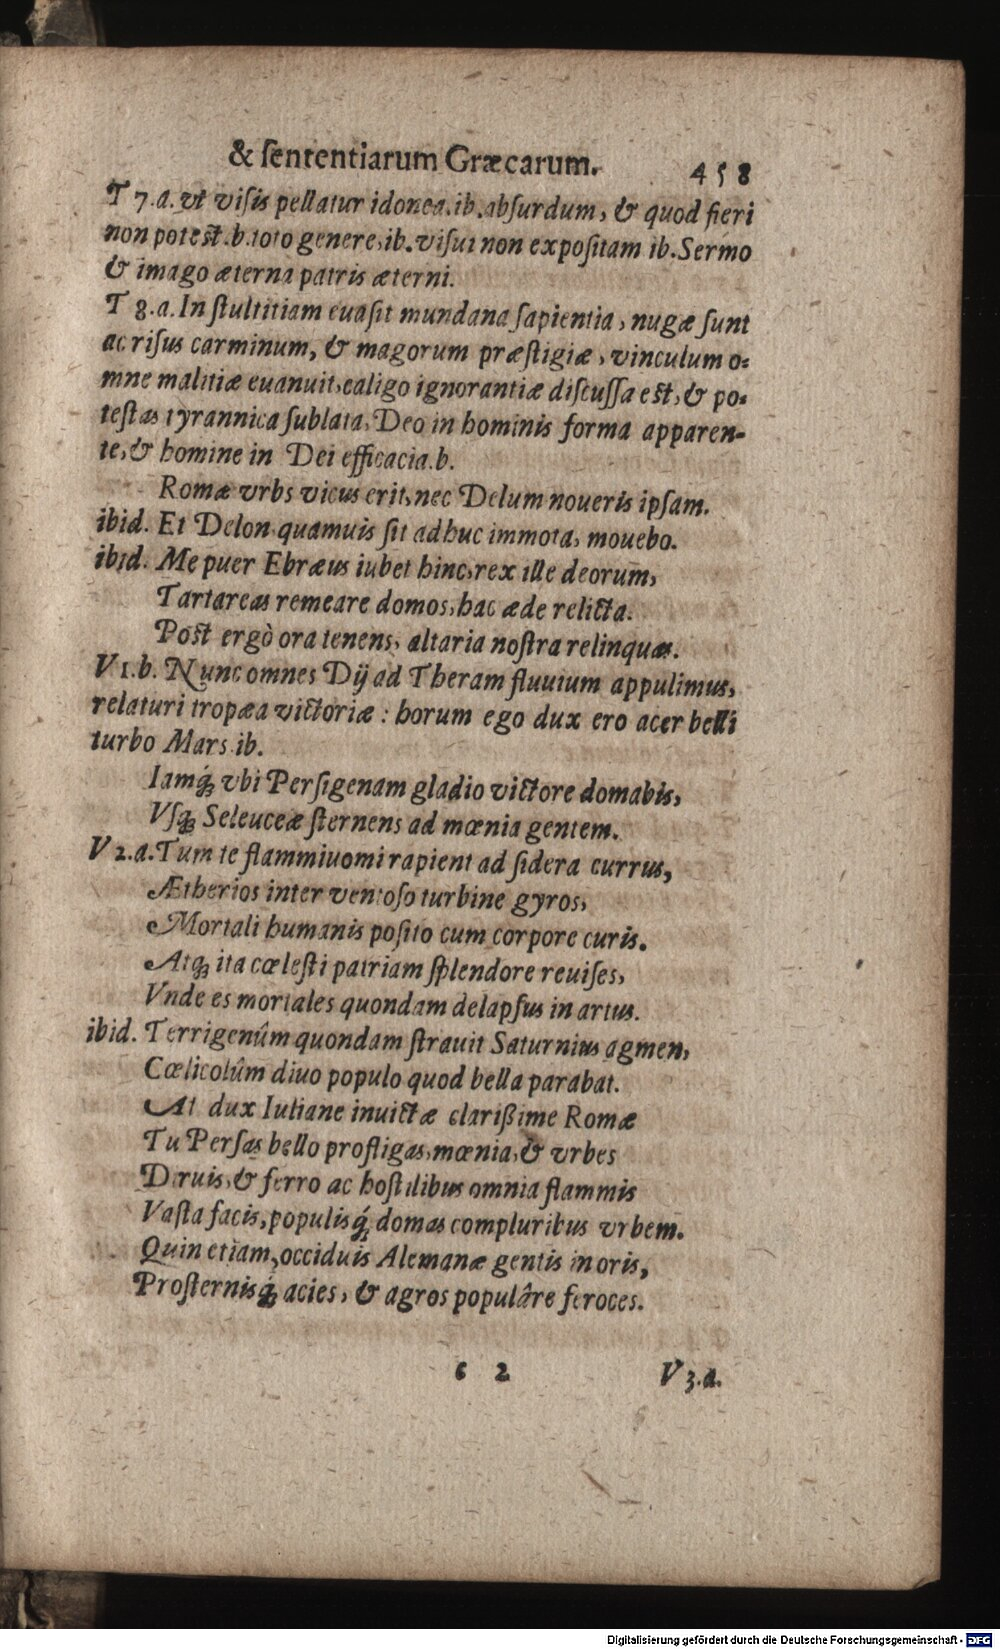 & ſententiarum Græcarum. 458
T 7.a. vt viſis pellatur idonea.ib.abſurdum, & quod fieri
non poteſt.b.toto genere,ib.viſui non expoſitam ib.Sermo
& imago æterna patris æterni.
T 8.a. In ſtultitiam euaſit mundana ſapientia, nugæ ſunt
ac riſus carminum, & magorum præſtigiæ, vinculum o-
mne malitiæ euanuit,caligo ignorantiæ diſcuſſa eſt, & po-
teſtas tyrannica ſublata, Deo in hominis forma apparen-
te,& homine in Dei efficacia.b.
Romæ vrbs vicus erit,nec Delum noueris ipſam.
ibid. Et Delon quamuis ſit adhuc immota, mouebo.
ibid. Me puer Ebræus iubet hinc,rex ille deorum,
Tartareas remeare domos,hac æde relicta.
Poſt ergò ora tenens, altaria noſtra relinquas.
V 1.b. Nunc omnes Dij ad Theram fluuium appulimus,
relaturi tropæa victoriæ : horum ego dux ero acer belli
turbo Mars ib.
Iamq́; vbi Perſigenam gladio victore domabis,
Vſq; Seleuceæ ſternens ad mœnia gentem.
V 2.a. Tum te flammiuomi rapient ad ſidera currus,
Ætherios inter ventoſo turbine gyros,
Mortali humanis poſito cum corpore curis.
Atq; ita cœleſti patriam ſplendore reuiſes,
Vnde es mortales quondam delapſus in artus.
ibid. Terrigenûm quondam ſtrauit Saturnius agmen,
Cœlicolûm diuo populo quod bella parabat.
At dux Iuliane inuictæ clariſſime Romæ
Tu Perſas bello profligas,mœnia,& vrbes
Diruis,& ferro ac hoſtilibus omnia flammis
Vaſta facis,populisq́; domas compluribus vrbem.
Quin etiam,occiduis Alemanæ gentis in oris,
Proſternisq́; acies, & agros populâre feroces.
6 2 V 3.a.
Digitalisierung gefördert durch die Deutsche Forschungsgemeinschaft - DFG